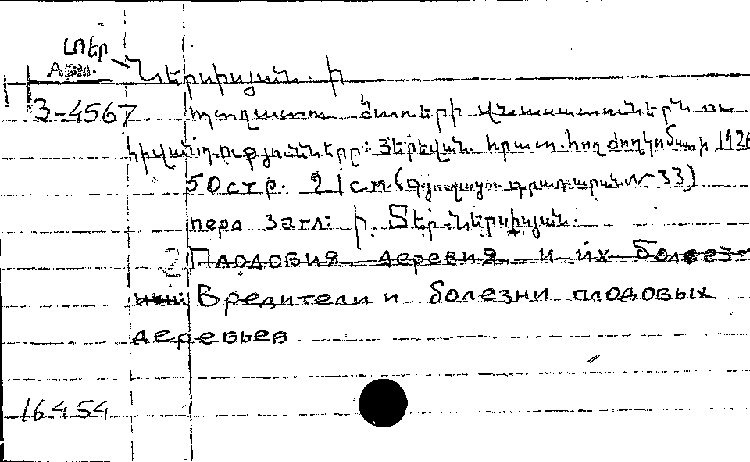 Տեր
Арм. Ներսիսյան. Ի
3-4567 պտղատու ծառերի վնասատուներն ու
հիվանդությունները: Յերեվան. հրատ. հող ժողկոմատի 1926
50 стр. 21 см. (Գյուղացու գրադարան № 33)
пера загл: Ի. Տեր-Ներսիսյան.
2 Плодовия деревия и их болез-
нин: Вредители и болезни плодовых
деревьев
16454